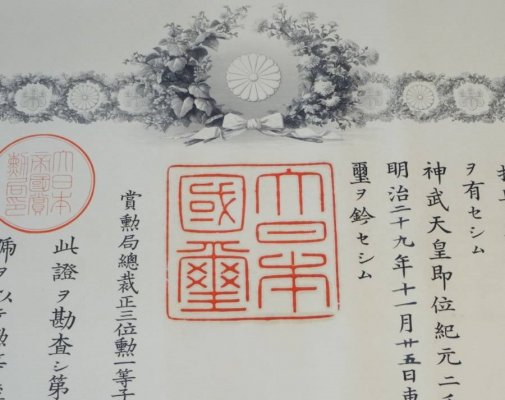 ヲ有セシム
神武天皇即位紀元二千
明治二十九年十一月廿五日東
璽ヲ鈐セシム
大日本
國璽
賞勲局總裁正三位勲一等子
此證ヲ勘査シ第
大日本
帝國賞
勲局印
ヲ以テ勲等